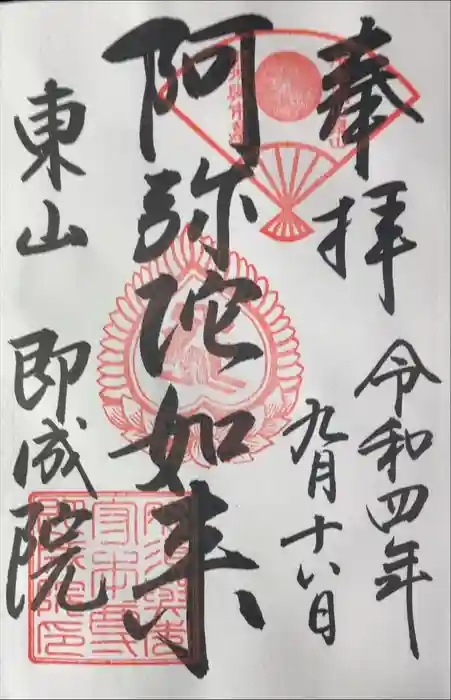 奉拝
令和四年
九月十八日
阿弥陀如来
東山
即成院